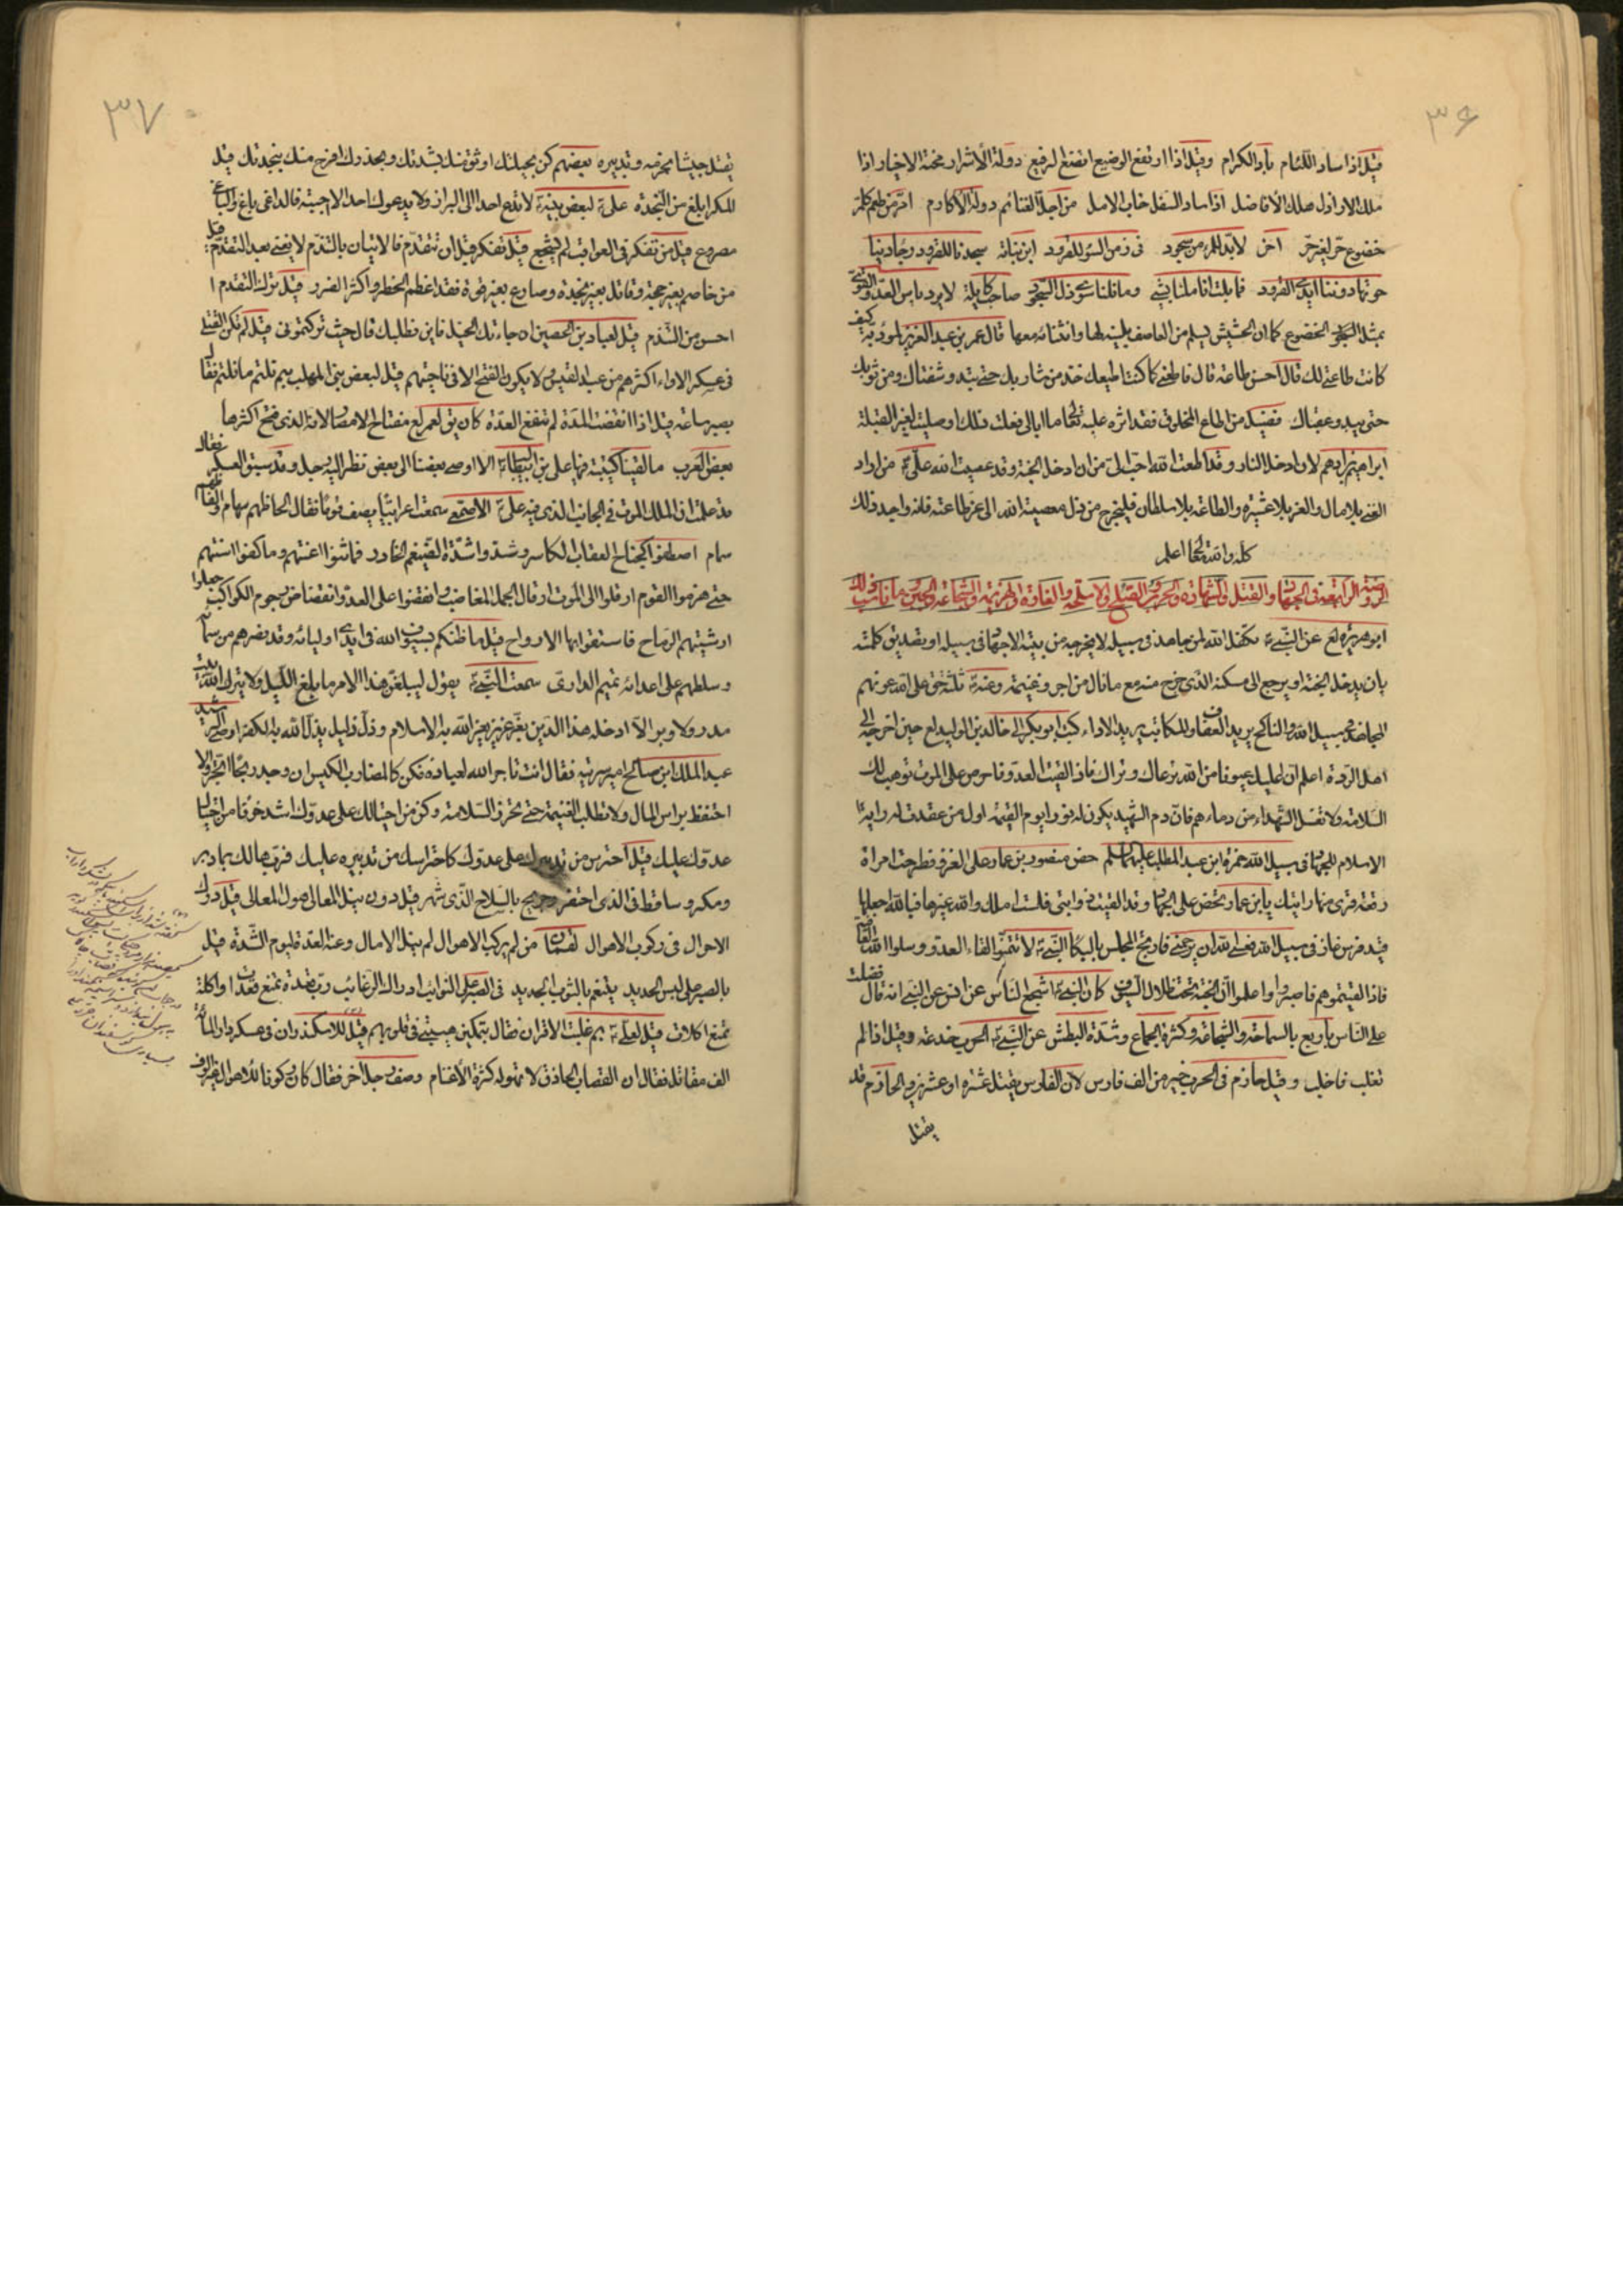 ٣۶
قيل اذا ساد اللئام باد الكرام وقيل اذا ارتفع الوضيع اتضع الرفيع دولة الاشرار محنة الاخيار اذا
ملك الاراذل هلك الافاضل اذا ساد السفل خاب الامل من اجل الغنائم دولة الاكارم
خضوع حر لغير حر اخر لابد للمرء من سجود فى زمن السوء للقرود ابن نباتة سجدنا للقرود رجاء دنيا
حوتها دوننا ايدى القرود فما بلت اناملنا بشئ وما نلنا سوى ذل السجود صاحب كليلة لا يرد باس العدو القوى
بمثل الخضوع كما ان الحشيش يسلم من العاصف بلينه لها وانثنائه معها قال عمر بن عبد العزيز لمؤدبه كيف
كانت طاعتى لك قال احسن طاعة قال فاطعنى كما كنت اطيعك خذ من شاربك حتى تبدو شفتاك ومن ثوبك
حتى يبدو عقباك فضيل من اطاع المخلوق فقد اثره عليه تعالى ما ابالى فعلت ذلك او صليت لغير القبلة
ابراهيم بن ادهم لان ادخل النار وقد اطعت الله احب الى من ان ادخل الجنة وقد عصيت الله على من اراد
الغنى بلا مال والعز بلا عشيرة والطاعة بلا سلطان فليخرج من ذل معصية الله الى عز طاعته فانه واجد ذلك
كله والله تعالى اعلم
الروضة الرابعة فى الجهاد والقتل والشهادة والحرب والصلح والاسلحة والغارة والهزيمة والشجاعة والجبن وما ناسب ذلك
ابو هريرة رفع عن النبى تكفل الله لمن جاهد فى سبيله لا يخرجه من بيته الا جهاد فى سبيله او تصديق كلمته
بان يدخله الجنة او يرجع الى مسكنه الذى خرج منه مع ما نال من اجر وغنيمة وعنه ثلثة حق على الله عونهم
المجاهد فى سبيل الله والناكح يريد العفاف والمكاتب يريد الاداء كتب ابو بكر الى خالد بن الوليد حين اخرجه الى
اهل الردة اعلم ان عليك عيونا من الله ترعاك وتراك فاذا لقيت العدو فاحرص على الموت توهب لك
السلامة ولا تغسل الشهداء من دماءهم فان دم الشهيد يكون له نورا يوم القيمة اول من عقدت له راية
الاسلام للجهاد فى سبيل الله حمزة ابن عبد المطلب حض منصور بن عمار على الغزو فطرحت امراة
رقعة فرئ فيها رايتك يا بن عمار تحض على الجهاد وقد القيت ذوابتى فلست املك والله غيرها فبالله جعلها
قيد فرس غاز فى سبيل الله فعسى الله ان يرحمنى فارتج المجلس بالبكاء النبى لا تتمنوا لقاء العدو وسلوا الله العافية
فاذا لقيتموهم فاصبروا واعلموا ان الجنة تحت ظلال السيوف كان النبى اشجع الناس عن انس عن النبى انه قال فضلت
على الناس باربع بالسماحة والشجاعة وكثرة الجماع وشدة البطش عن النبى الحرب خدعة وقيل اذا لم
تغلب فاخلب وقيل حازم فى الحرب خير من الف فارس لان الفارس يقتل عشرة او عشرين والحازم قد
يقتل
٣٧
يقتل جيشا بحزمه وتدبيره بعضهم كن بحيلتك اوثق منك بشدتك وبحذرك افرح منك بنجدتك قيل
المكر ابلغ من النجدة على لبعض بنيه لا تدع احدا الى البراز ولا يدعوك احد الا اجبته فالداعى باغ والباغى
مصروع قيل من تفكر فى العواقب لم يشجع قيل تفكر قبل ان تتقدم فالاتيان بالتندم لا يغنى بعد التقدم قيل
من خاصم بغير حجة وقاتل بغير نجدة وصارع بغير قوة فقد اعظم الخطر واكثر الغرر قيل ترك التقدم
احسن من التندم قيل لعباد بن الحصين ان جاءتك الخيل فاين نطلبك قال حيث تركتمونى قيل لم تكن الفتى
فى عسكر الا وراء اكثرهم من عبد القيس ولا يكون الفتح الا فى ناحيتهم قيل لبعض بنى المهلب بم نلتم ما نلتم فقال
بصبر ساعة قيل اذا انقضت المدة لم تنفع العدة
بعض العرب ما لقينا كتيبة فيها على بن ابيطالب الا اوصى بعضنا الى بعض نظر اليه رجل وقد سبق العسكر فقال
قد علمت ان ملك الموت فى الجانب الذى فيه على الاصمعى سمعت اعرابيا يصف قوما فقال الحاظهم سهام والفاظهم
سمام اصطفوا كجناح العقاب الكاسر وشدوا شدة الضيغم الخادر فما ثنوا اعنتهم وما كفوا اسنتهم
حتى هزموا القوم ارقلوا الى الموت ارقال الجمال المغاضب وانقضوا على العدو انقضاض نجوم الكواكب جعلوا
ارشيتهم الرماح فاستقوا بها الارواح قيل ما ظنكم بسيوف الله فى ايدى اوليائه وقد نصرهم من سمائه
وسلطهم على اعدائه تميم الدارى سمعت النبى يقول ليبلغن هذا الامر ما بلغ الليل ولا يترك الله بيت
مدر ولا وبر الا ادخله هذا الدين بعز عزيز يعز الله به الاسلام وذل ذليل يذل الله به الكفر اوصى الرشيد
عبد الملك ابن صالح امير سرية فقال انت تاجر الله لعباده فكن كالمضارب الكيس ان وجد ربحا اتجر والا
احتفظ براس المال ولا تطلب الغنيمة حتى تحرز السلامة وكن من احتيالك على عدوك اشد خوفا من احتيال
عدوك عليك قيل احترس من تدبيرك على عدوك كاحتراسك من تدبيره عليك فرب هالك بما دبر
ومكر وساقط فى الذى احتفر وجريح بالسلاح الذى شهر قيل دون نيل المعالى هول المعالى قيل درك
الاحوال فى ركوب الاهوال لقمان من لم يركب الاهوال لم ينل الامال وعنه العدة ليوم الشدة قيل
بالصبر على لبس الحديد يتنعم بالثوب الجديد فى الصبر على النوائب ادراك الرغائب رب قعدة تمنع قعدات واكلة
تمنع اكلات قيل لعلى بم غلبت الاقران فقال بتمكين هيبتى فى قلوبهم قيل للاسكندر ان فى عسكر دارا الف
الف مقاتل فقال ان القصاب الحاذق لا تهوله كثرة الاغنام وصف رجل اخر فقال كان ركوبا للاهوال